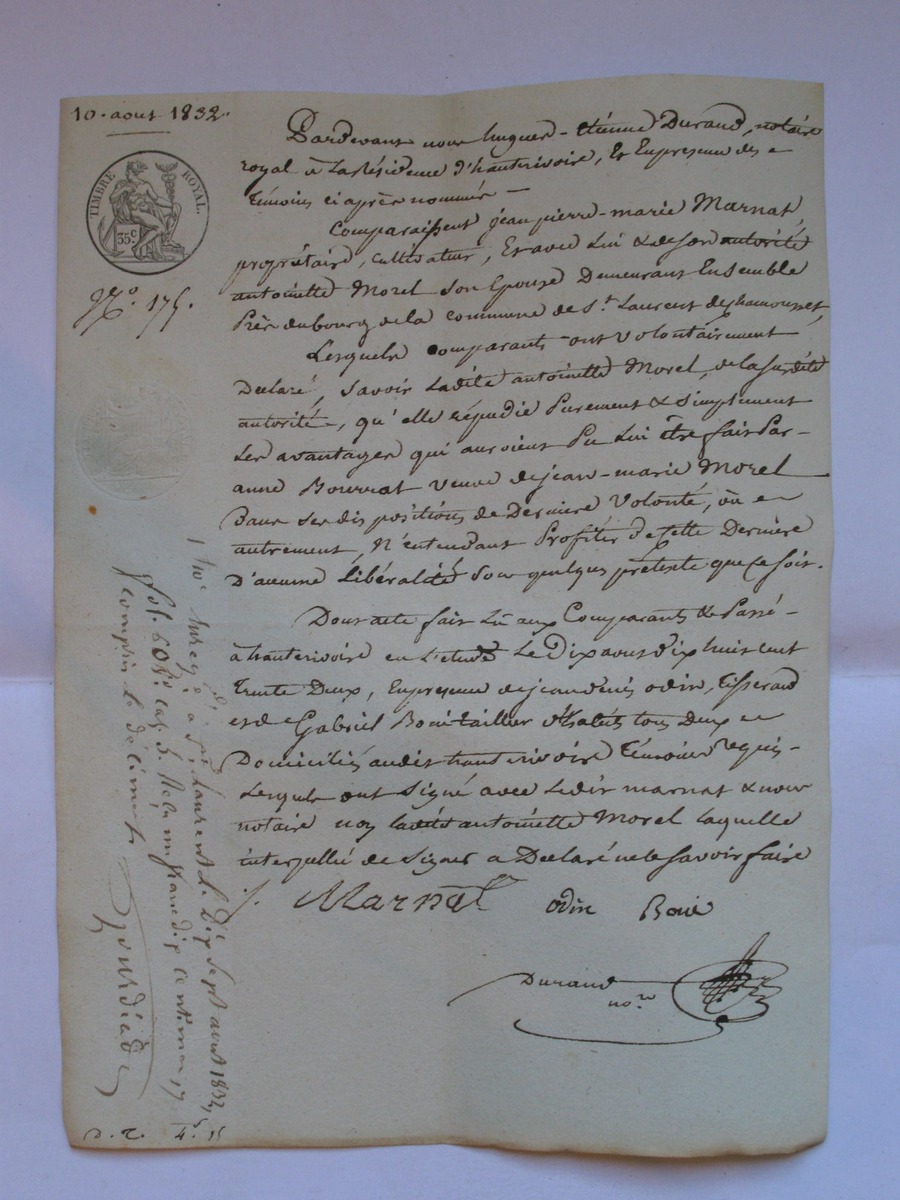 10. aout 1832.
TIMBRE ROYAL.
35c
No. 175.
Pardevant nous hugues-étienne Durand, notaire
royal à la Résidence d'hauterivoire, Et En presence des
témoins ci après nommés
Comparaissent jean pierre-marie Marnat,
propriétaire, cultivateur, Et avec Lui & de son autorité
antoinette Morel son Epouse Demeurant Ensemble
Près du bourg de la commune de St. Laurent de chamousset,
Lesquels comparants ont volontairement
Déclaré, savoir Ladite antoinette Morel, de la susdite
autorité, qu'elle répudie Purement & simplement
Les avantages qui auroient Pu Lui être fait Par
anne Bourrat veuve de jean-marie Morel
Dans ses dispositions de Dernière volonté, où
autrement, N'entendant Profiter de cette Dernière
D'aucune Libéralité sous quelque prétexte que ce soit.
Dont acte fait Lu aux Comparants & Passé
à hauterivoire en L'etude Le Dix aout Dix huit cent
trente Deux, En presence de jean denis odin, tisserand
et de Gabriel Boui tailler d'habits tous Deux
Domiciliés audit hauterivoire témoins Requis
Lesquels ont signé avec Ledit marnat & nous
notaire non ladite antoinette Morel Laquelle
interpellée de signer a Déclaré ne le savoir faire
Marnat odin Boui
Durand
nore
Enregé à St Laurent le Dix sept aout 1832,
fol. 60 Rd. cas. 5. Reçu un franc dix centimes 17
compris le décime
D. T. 4f 15